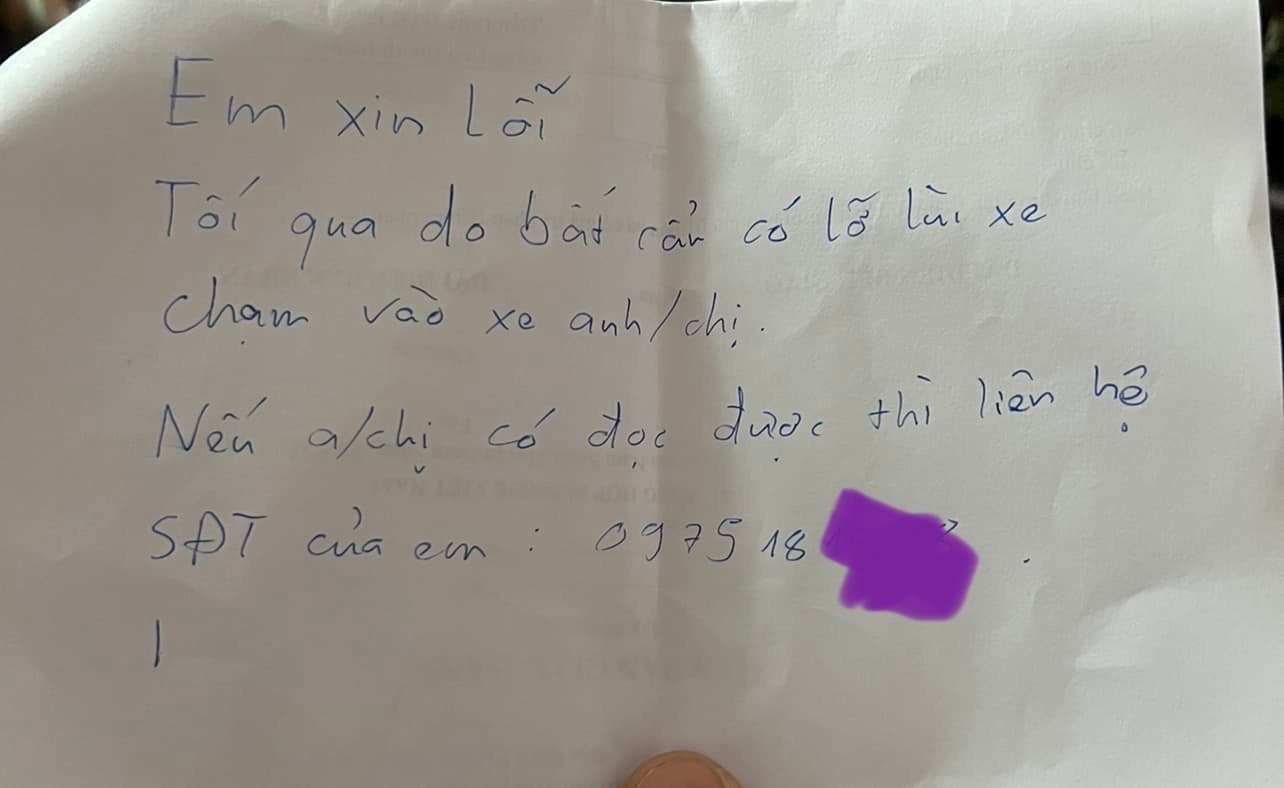 Em xin lỗi
Tối qua do bất cẩn có lỡ lùi xe
chạm vào xe anh/chị.
Nếu a/chị có đọc được thì liên hệ
SĐT của em : 0975 18